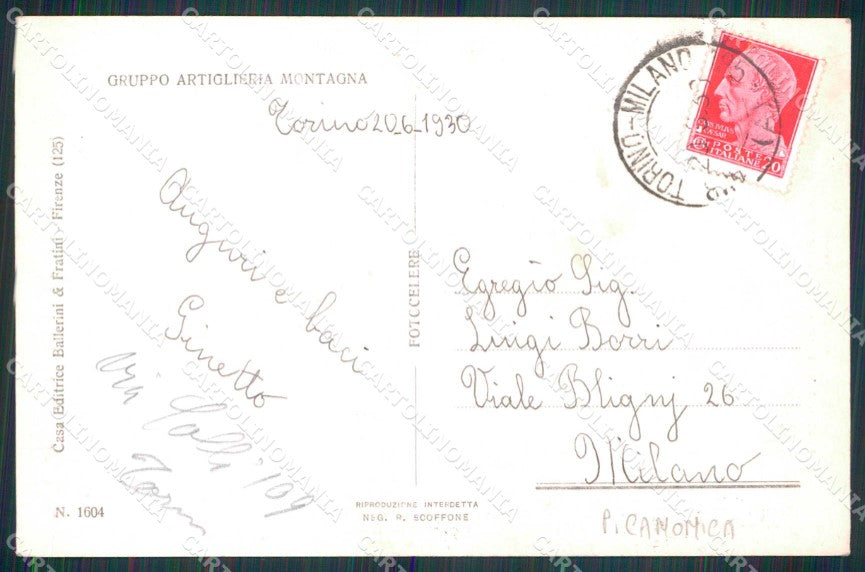 GRUPPO ARTIGLIERIA MONTAGNA
Torino 20_6_1930
Auguri e baci
Ginetto
Via
Casa Editrice Ballerini & Fratini - Firenze (125)
N. 1604
FOTOCELERE
RIPRODUZIONE INTERDETTA
NEG. R. SCOFFONE
TORINO-MILANO
IVLIVS
CAESAR
POSTE
ITALIANE
20
Egregio Sig.
Luigi Borri
Viale Bligny 26
Milano
P. CANONICA
CARTOLINOMANIA